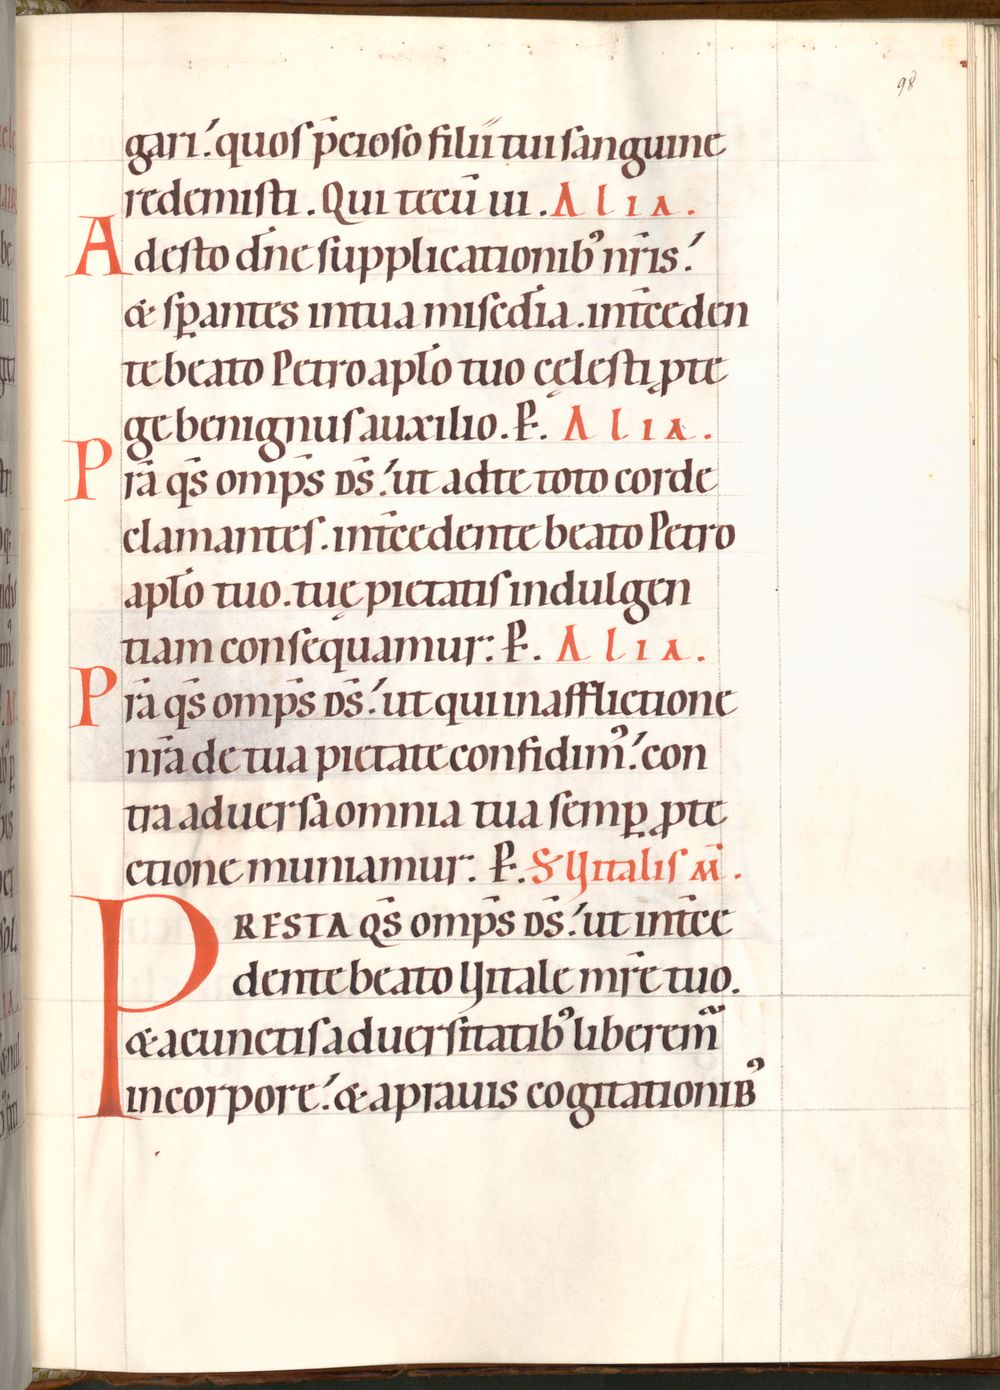 98
gari. quos p̄cioso filii tui sanguine
redemisti. Qui tecū ui. Alia.
Adesto dn̄e supplicationib' nr̄is.
& sꝑantes in tua misc̄dia. int̄ceden
te beato Petro apl̄o tuo cęlesti ꝓte
ge benignus auxilio. P̱. Alia.
Pr̄a qs̄ omp̄s ds̄. ut ad te toto corde
clamantes. int̄cedente beato Petro
apl̄o tuo. tuę pietatis indulgen
tiam consequamur: P̱. Alia.
Pr̄a qs̄ omp̄s ds̄. ut qui in afflictione
nr̄a de tua pietate confidim'. con
tra aduersa omnia tua semꝑ ꝓte
ctione muniamur: P̱. S Vitalis m̄.
PRESTA qs̄ omp̄s ds̄. ut int̄ce
dente beato Vitale mr̄e tuo.
& a cunctis aduersitatib' liberem̃
in corpore. & a prauis cogitationib'